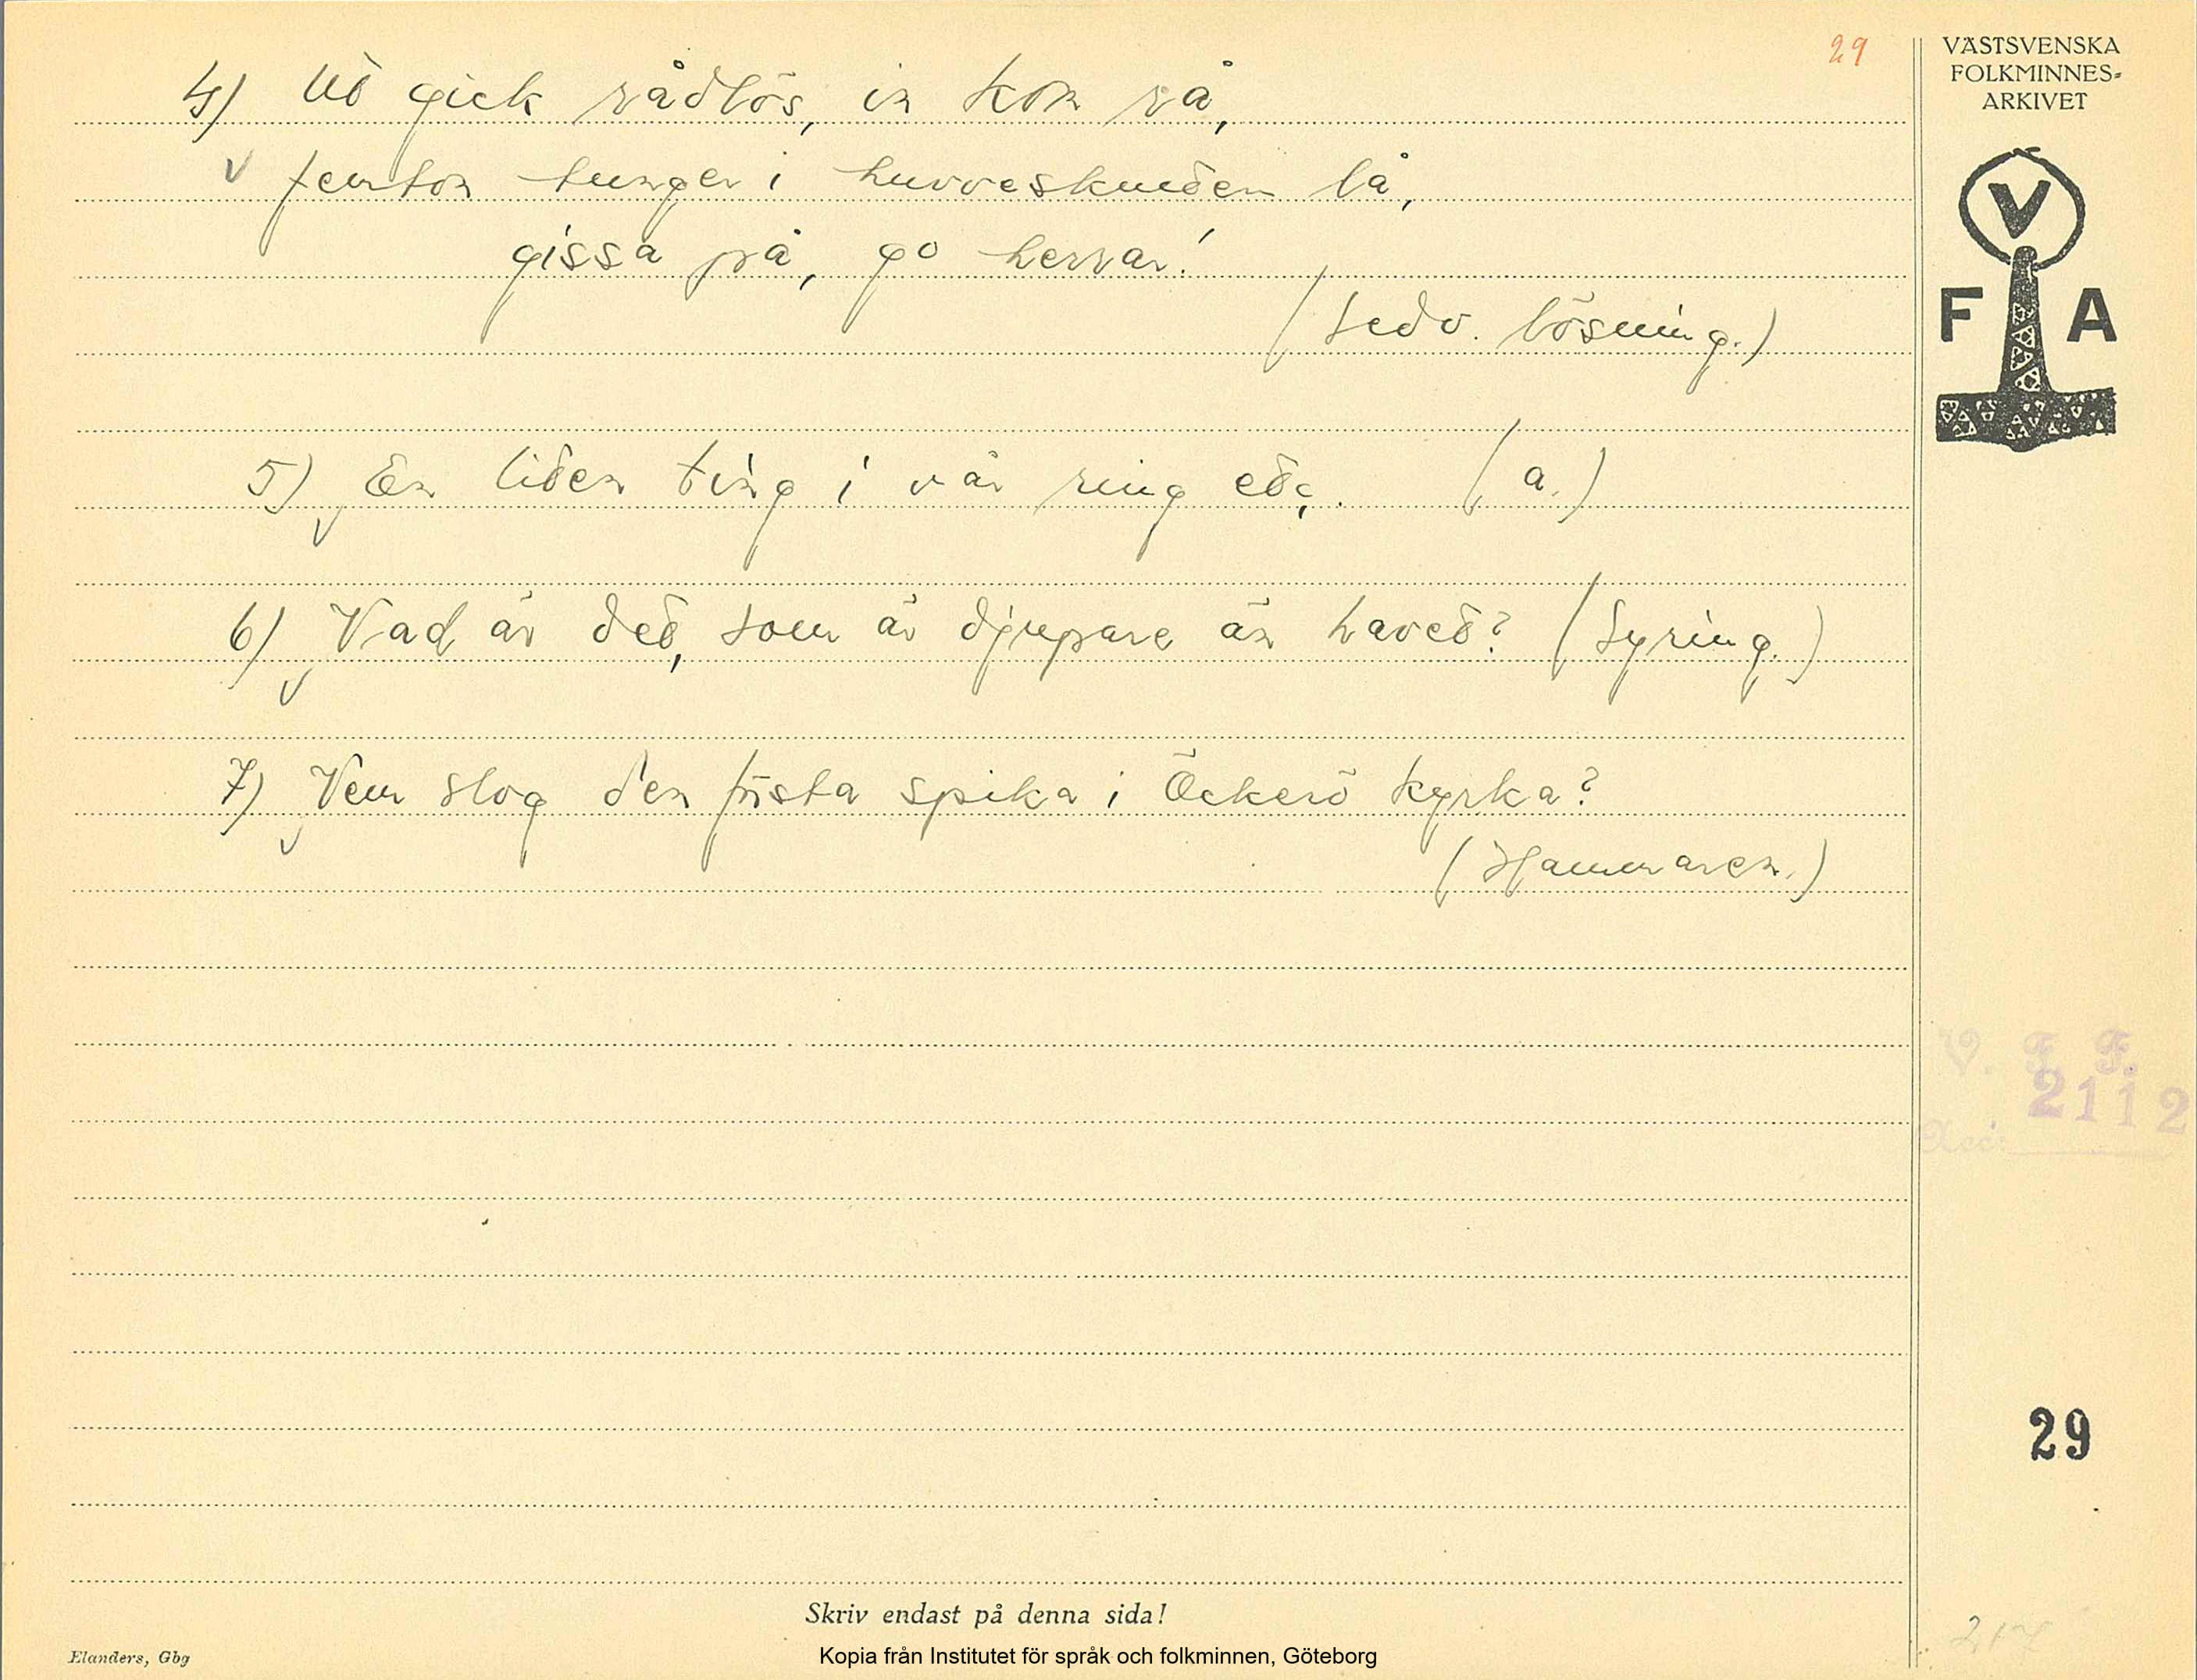 29
VÄSTSVENSKA
FOLKMINNES-
ARKIVET
V
F A
4) Ud gick rådlös, in kom rå,
v femton tunger i huvveskuden lå,
gissa på, go herrar!
(sedv. lösning.)
5) En liden ting i vår ring etc. (a.)
6) Vad är ded, som är djupare än haved? (Syring.)
7) Vem slog den fista spika i Öckerö kyrka?
(Hammaren.)
V. F. F.
2112
Acc:
29
217
Skriv endast på denna sida!
Elanders, Gbg
Kopia från Institutet för språk och folkminnen, Göteborg